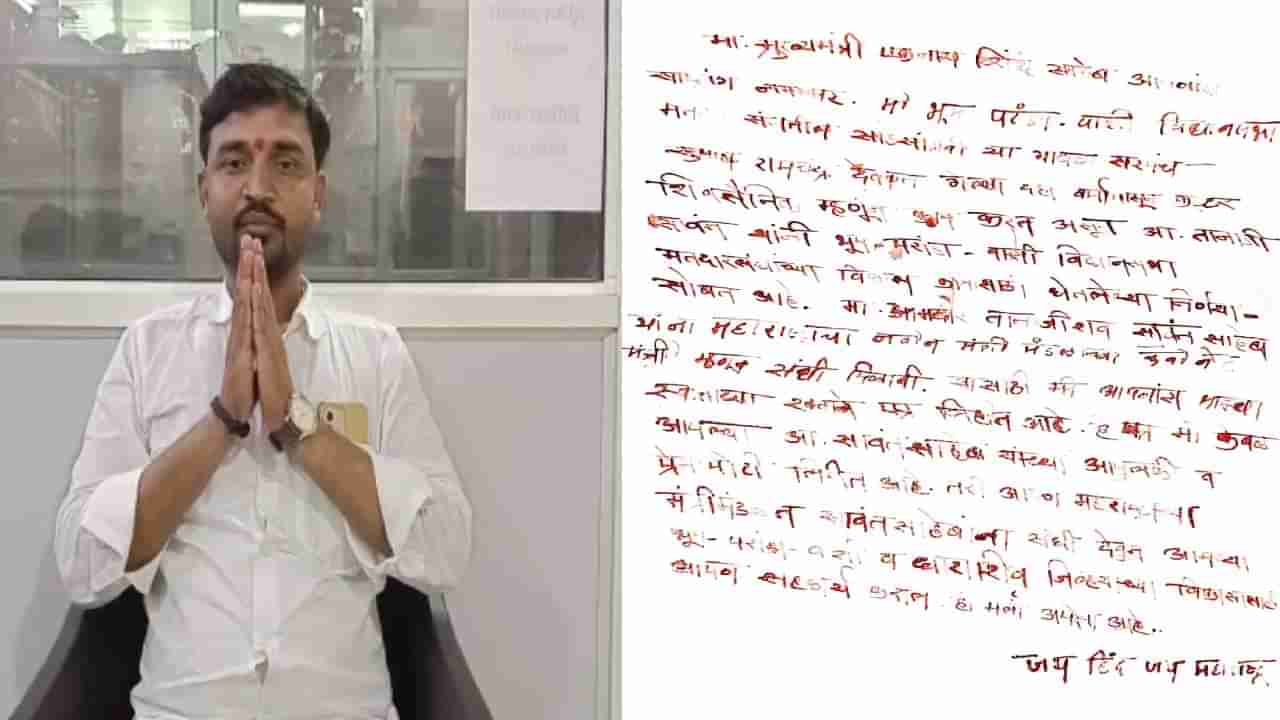 मा. मुख्यमंत्री एकनाथ शिंदे साहेब आपणांस
साष्टांग नमस्कार. मी भूम परंडा-वाशी विधानसभा
मत संघातील सांडसांगवी चा माजी सरपंच
सुभाष रामचंद्र देवकते गेल्या दहा वर्षांपासून कट्टर
शिवसैनिक म्हणून काम करत असून आ. तानाजी
सावंत यांनी भूम-परांडा-वाशी विधानसभा
मतदारसंघाच्या विकासा घेतलेल्या निर्णया-
सोबत आहे. मा. आमदार तानाजीराव सावंत साहेब
यांना महाराष्ट्राच्या नवीन मंत्री मंडळाच्या कॅबीनेट
मंत्री म्हणून संधी मिळावी. यासाठी मी आपणांस माझ्या
स्वतःच्या रक्ताने पत्र लिहीत आहे. हे पत्र मी केवळ
आपल्या आ. सावंत साहेब यांच्या आपुलकी व
प्रेमापोटी लिहीत आहे. तरी आपण महाराष्ट्राच्या
मंत्रीमंडळात सावंत साहेबांना संधी देवून आमच्या
भूम-परांडा-वाशी व धाराशिव जिल्ह्याच्या विकासासाठी
आपण सहकार्य कराल ही मला अपेक्षा आहे..
जय हिंद जय महाराष्ट्र